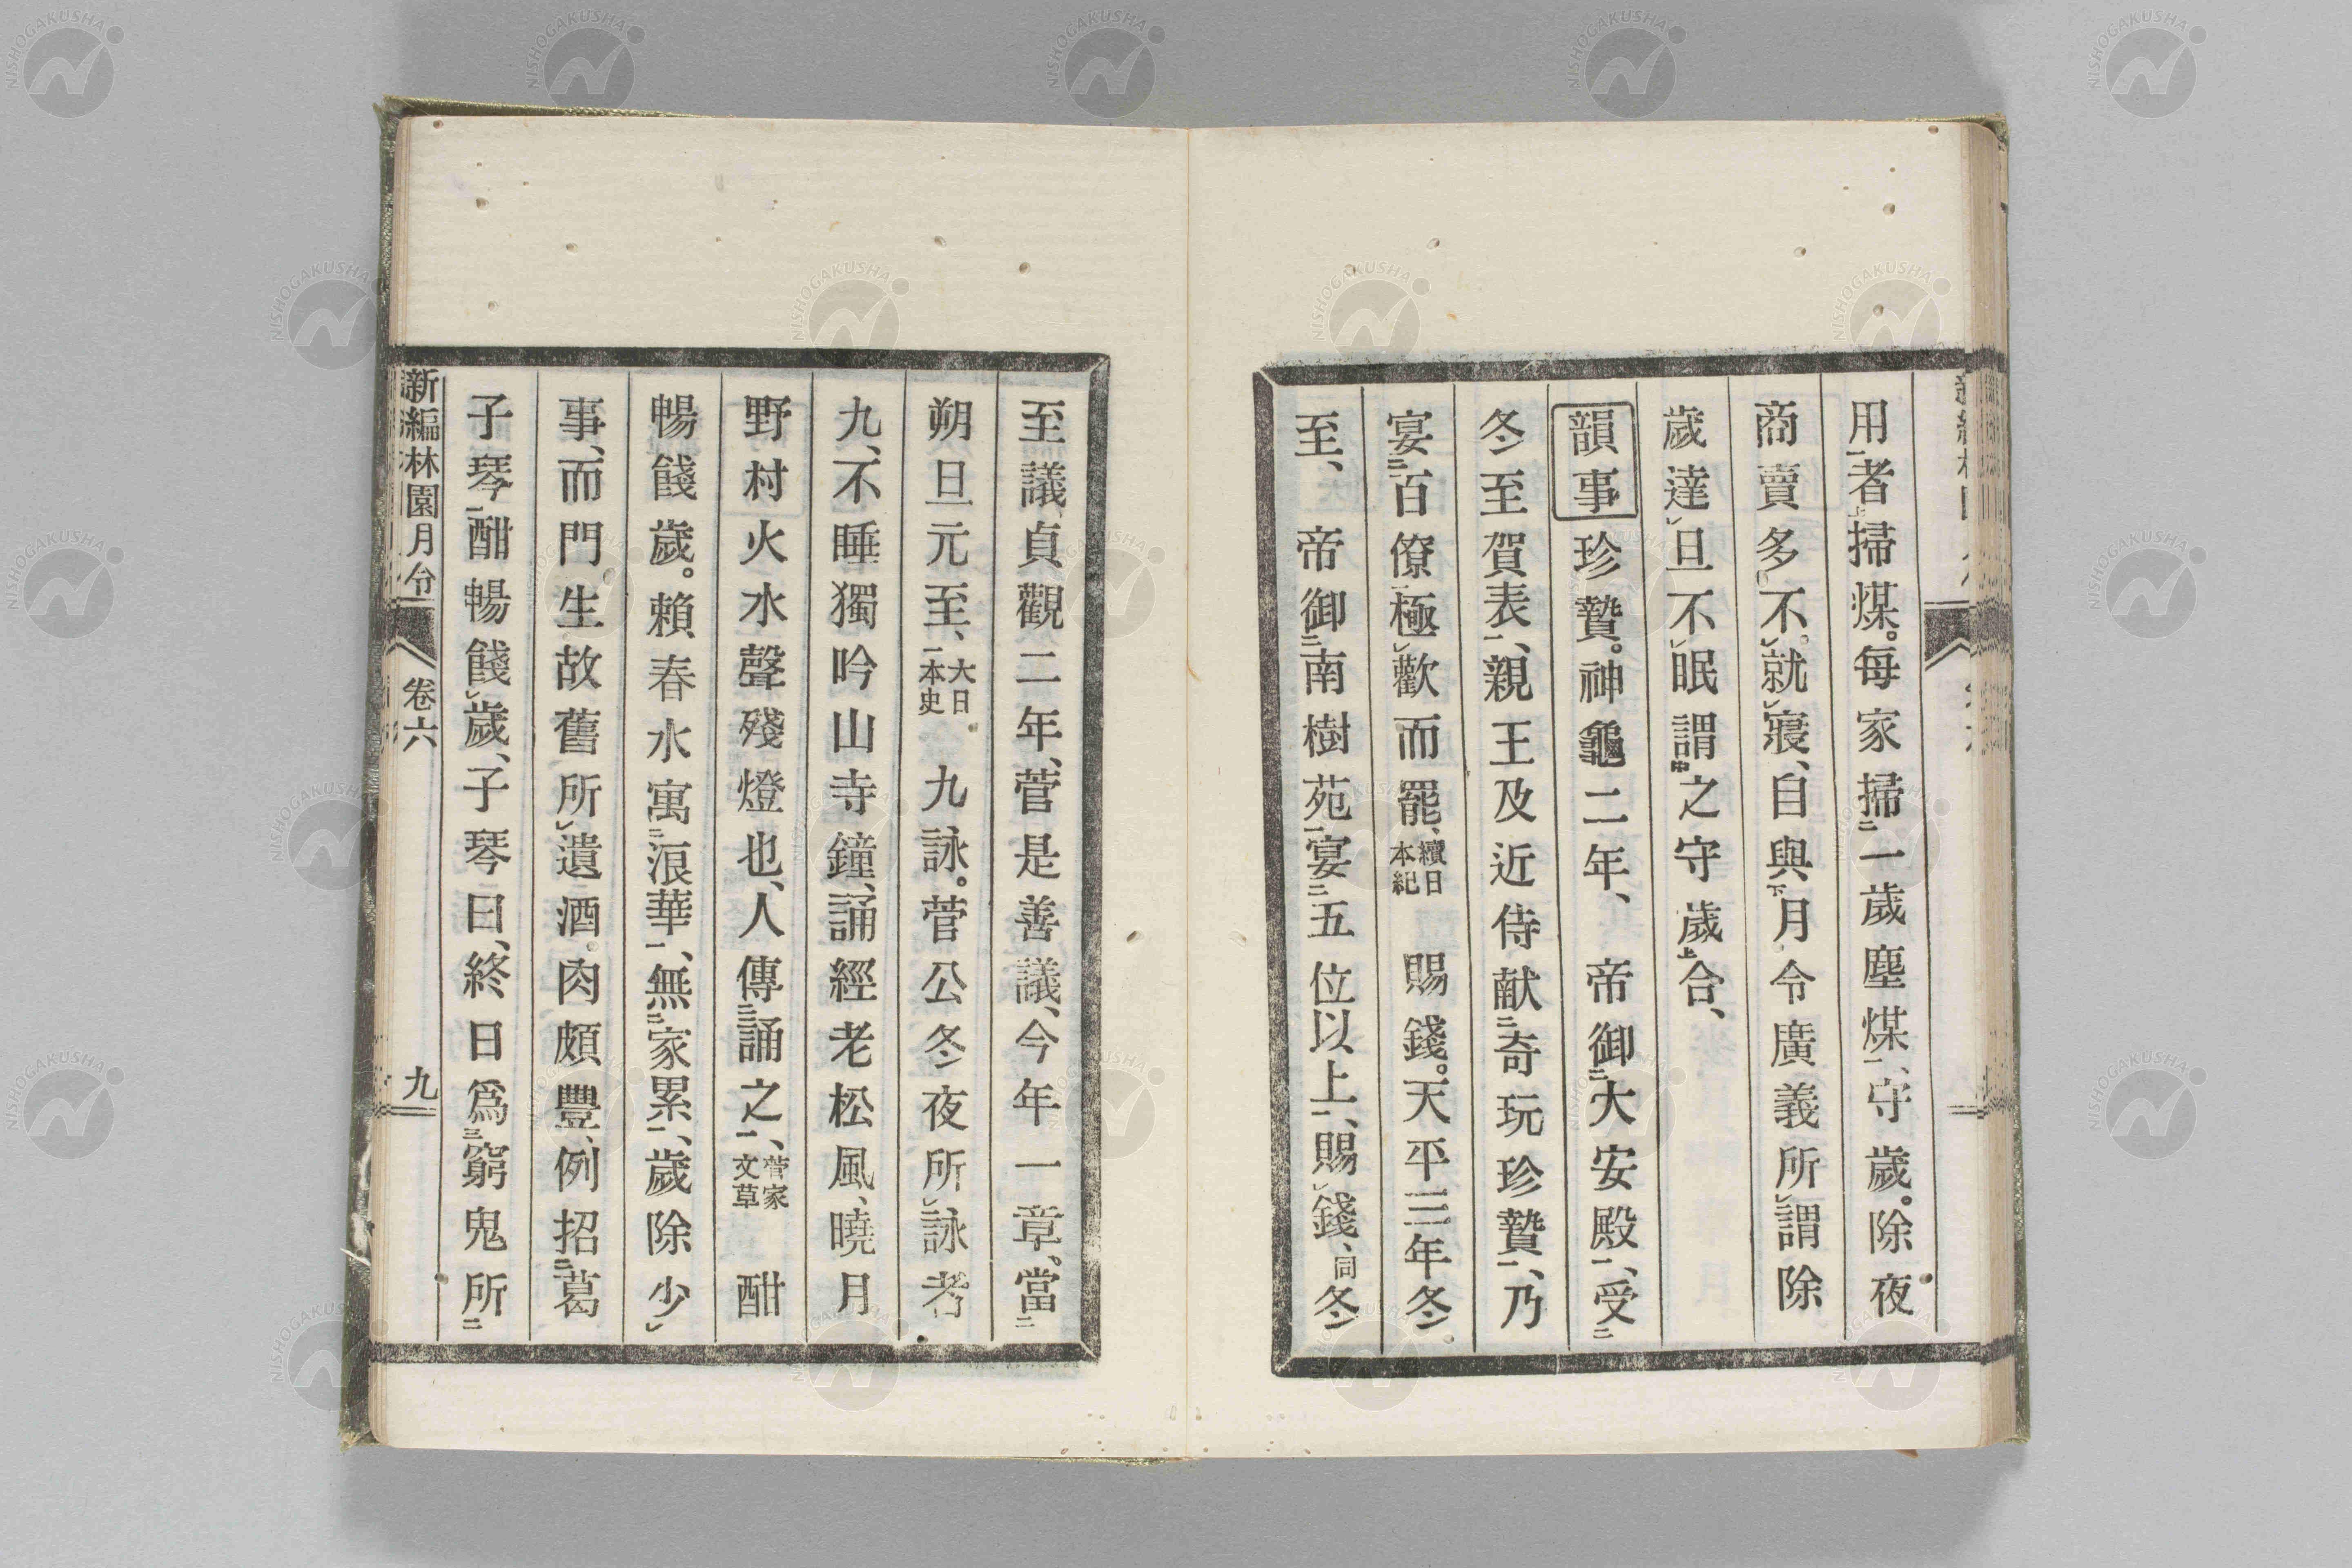 用一者上掃煤。每家掃二一歲塵煤一、守歲。除夜
商賣多不レ就レ寢、自與下月令廣義所レ謂除
歲達レ旦不レ眠謂中之守歲上合、
韻事 珍贄。神龜二年、帝御二大安殿一、受三
冬至賀表一、親王及近侍献二奇玩珍贄一、乃
宴二百僚一極レ歡而罷、續日本紀 賜錢。天平三年冬
至、帝御二南樹苑一宴二五位以上一、賜レ錢、同冬
至議、貞觀二年、菅是善議、今年一章、當二
朔旦元至、一大日本史 九詠。菅公冬夜所レ詠者
九、不睡獨吟山寺鐘、誦經老松風、曉月
野村火水聲殘燈也、人傳三誦之一、菅家文草 酣
暢餞歲。賴春水寓二浪華一、無二家累一、歲除少レ
事、而門生故舊所レ遺酒肉頗豐、例招二葛
子琴一酣暢餞レ歲、子琴曰、終日爲三窮鬼所二
新編林園月令 卷六 九
NISHOGAKUSHA